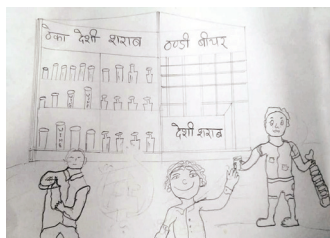 ठेका देशी शराब
ठण्डी बीयर
देशी शराब